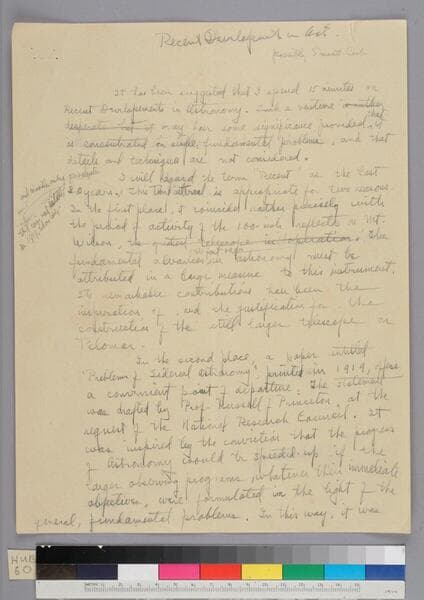 Recent Developments in Ast.
It has been suggested that I spend 15 minutes on
Recent Developments in Astronomy. Such a venture is rather
desperate but it may have some significance provided that it
is concentrated on single, fundamental problems, and that
details and techniques are not considered.
I will regard the term "Recent" as the last
20 years. This time interval is appropriate for two reasons.
In the first place, it coincides rather precisely with
the period of activity of the 100-inch reflector on Mt.
Wilson, the greatest telescope in operation. The
fundamental advances in astronomy must be
attributed in a large measure to this instrument.
Its remarkable contributions have been the
inspiration of, and the justification for the
construction of the still larger telescope on
Palomar.
In the second place, a paper entitled
"Problems of Sidereal Astronomy" printed in 1919, offers
a convenient point of departure. The statement
was drafted by Prof. Russell of Princeton, at the
request of the National Research Council. It
was inspired by the conviction that the progress
of Astronomy could be speeded up if the
larger observing programs, whatever their immediate
objectives, were formulated in the light of the
general, fundamental problems. In this way, it was
HUB
60